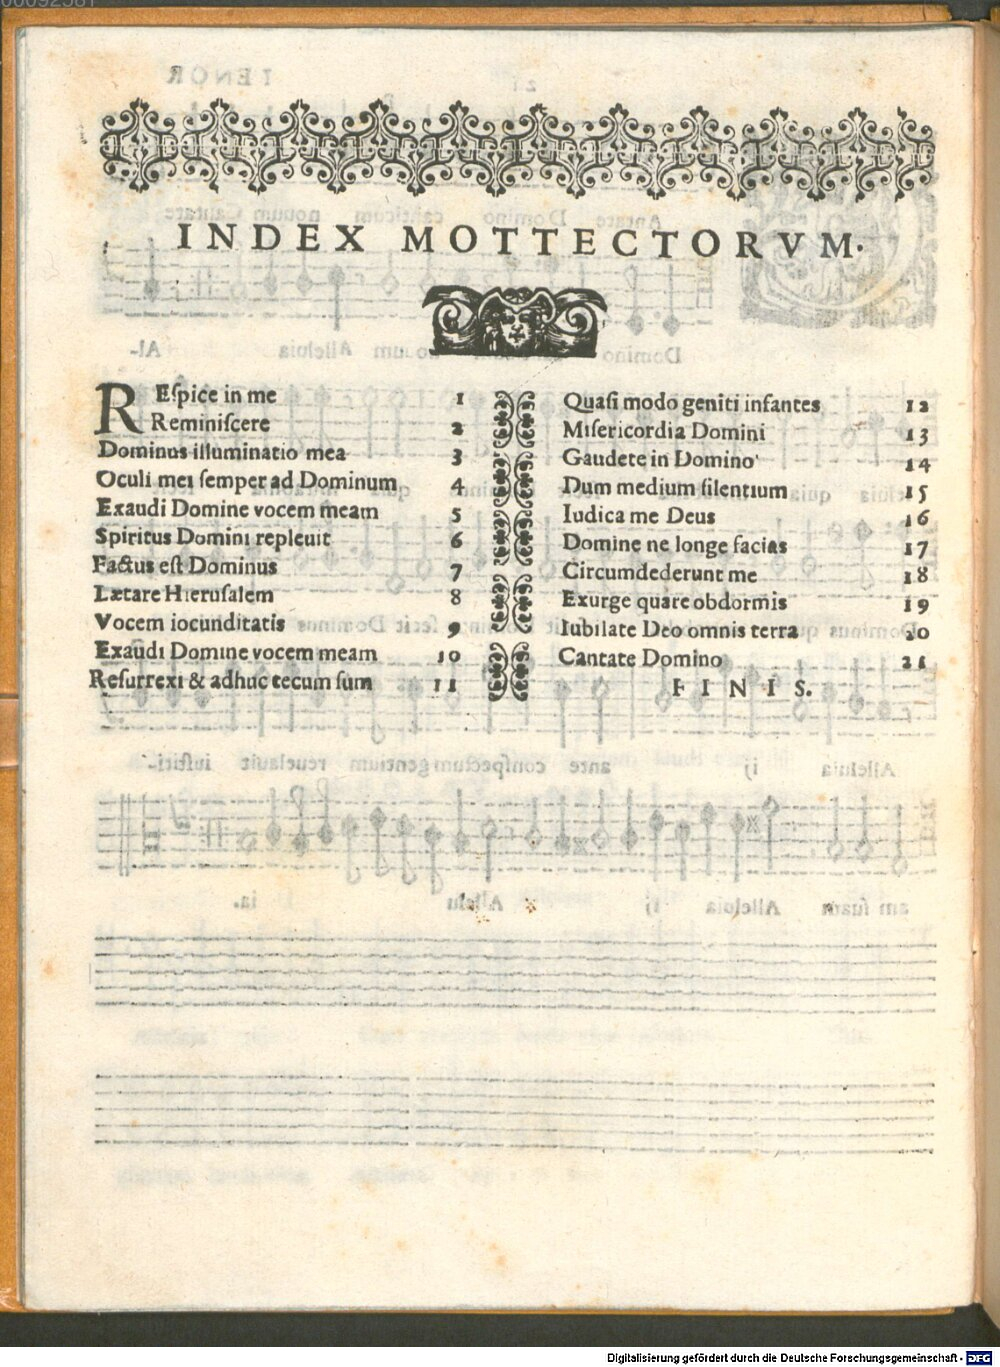 00092581
INDEX MOTTECTORVM.
REſpice in me 1
Reminiſcere 2
Dominus illuminatio mea 3
Oculi mei ſemper ad Dominum 4
Exaudi Domine vocem meam 5
Spiritus Domini repleuit 6
Factus eſt Dominus 7
Lætare Hieruſalem 8
Vocem iocunditatis 9
Exaudi Domine vocem meam 10
Reſurrexi & adhuc tecum ſum 11
Quaſi modo geniti infantes 12
Miſericordia Domini 13
Gaudete in Domino 14
Dum medium ſilentium 15
Iudica me Deus 16
Domine ne longe facias 17
Circumdederunt me 18
Exurge quare obdormis 19
Iubilate Deo omnis terra 20
Cantate Domino 21
FINIS.
Digitalisierung gefördert durch die Deutsche Forschungsgemeinschaft - DFG